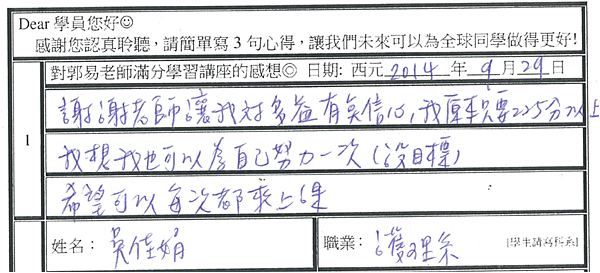 Dear 學員您好☺
感謝您認真聆聽，請簡單寫 3 句心得，讓我們未來可以為全球同學做得更好!
對郭易老師滿分學習講座的感想◎ 日期: 西元 2014 年 9 月 29 日
1
謝謝老師讓我對多益有負信心,我原本只要225分以上
我想我也可以為自己努力一次(設目標)
希望可以每次都來上課
姓名： 吳佳娟
職業： 護理系 [學生請寫科系]